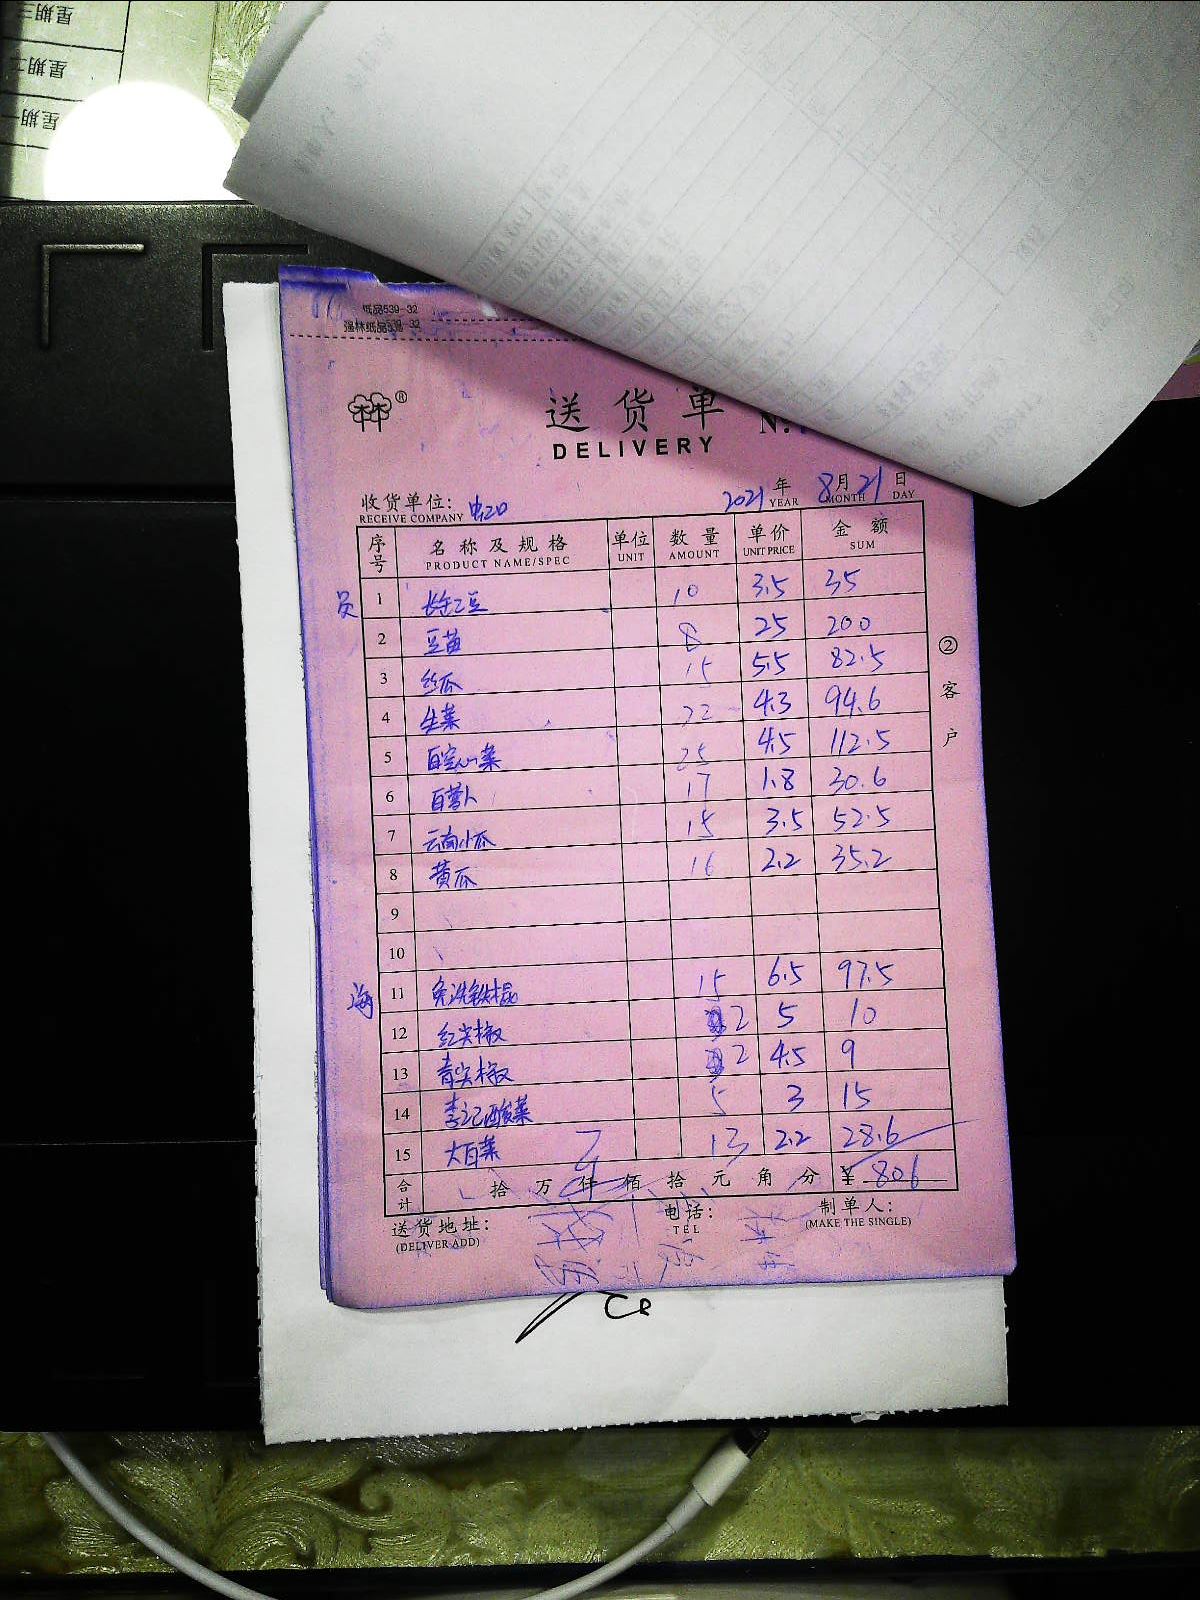 星期三
星期二
星期一
纸品539-32
强林纸品539-32
林®
送货单 №
DELIVERY
收货单位:
2021年 8月21日
RECEIVE COMPANY YEAR MONTH DAY
序号 名称及规格 单位 数量 单价 金额
PRODUCT NAME/SPEC UNIT AMOUNT UNIT PRICE SUM
员 1 10 3.5 35
2 豆苗 8 25 200
3 丝瓜 15 5.5 82.5
4 生菜 22 4.3 94.6
5 白空心菜 25 4.5 112.5
6 白萝卜 17 1.8 30.6
7 云南小瓜 15 3.5 52.5
8 黄瓜 16 2.2 35.2
9
10
海 11 免洗铁棍 15 6.5 97.5
12 红尖椒 2 5 10
13 青尖椒 2 4.5 9
14 李记酸菜 5 3 15
15 大白菜 13 2.2 28.6
合计 拾 万 仟 佰 拾 元 角 分 ¥ 806
送货地址: 电话: 制单人:
(DELIVER ADD) TEL (MAKE THE SINGLE)
②客户